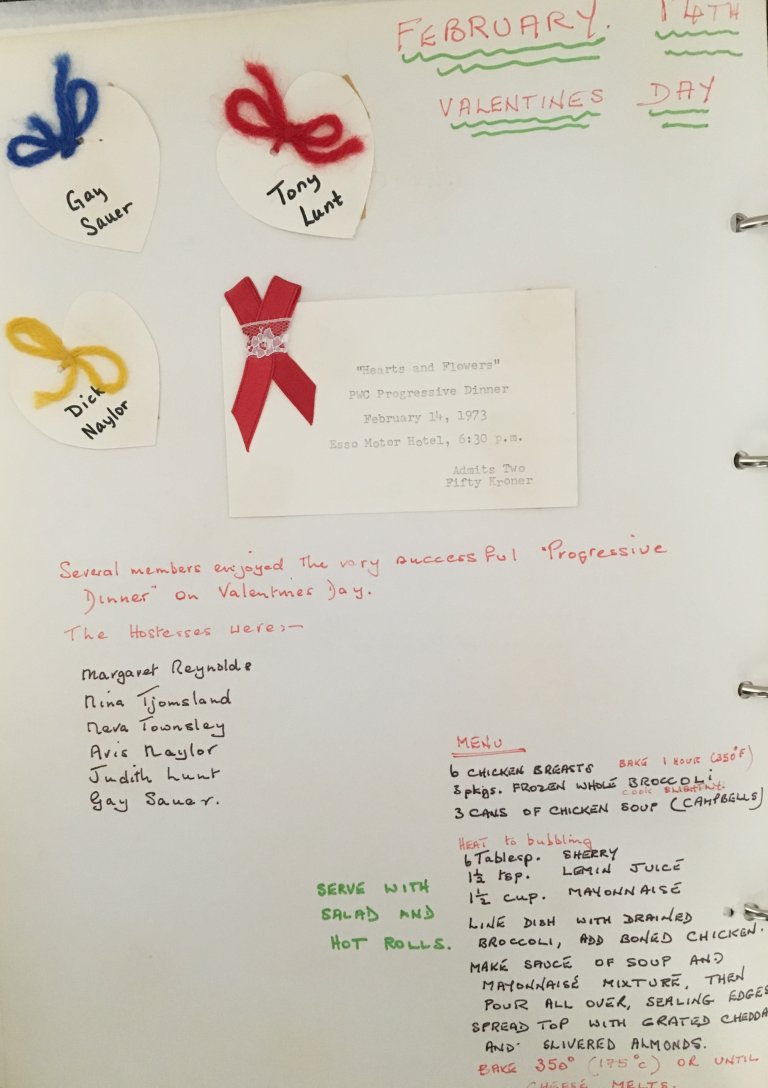 FEBRUARY. 14TH
VALENTINES DAY
Gay
Sauer
Tony
Lunt
Dick
Naylor
"Hearts and Flowers"
PWC Progressive Dinner
February 14, 1973
Esso Motor Hotel, 6:30 p.m.
Admits Two
Fifty Kroner
Several members enjoyed the very successful "Progressive
Dinner" on Valentines Day.
The Hostesses were:-
Margaret Reynolds
Nina Tjomsland
Neva Townsley
Avis Naylor
Judith Lunt
Gay Sauer.
MENU
6 CHICKEN BREASTS BAKE 1 HOUR (350°F)
3 pkgs. FROZEN WHOLE BROCCOLI
COOK SLIGHTLY.
3 CANS OF CHICKEN SOUP (CAMPBELLS)
HEAT to bubbling
6 Tablesp. SHERRY
1½ tsp. LEMIN JUICE
1½ cup. MAYONNAISE
SERVE WITH
SALAD AND
HOT ROLLS.
LINE DISH WITH DRAINED
BROCCOLI, ADD BONED CHICKEN.
MAKE SAUCE OF SOUP AND
MAYONNAISE MIXTURE, THEN
POUR ALL OVER, SEALING EDGES
SPREAD TOP WITH GRATED CHEDDA
AND SLIVERED ALMONDS.
BAKE 350° (175°C) OR UNTIL
CHEESE MELTS.